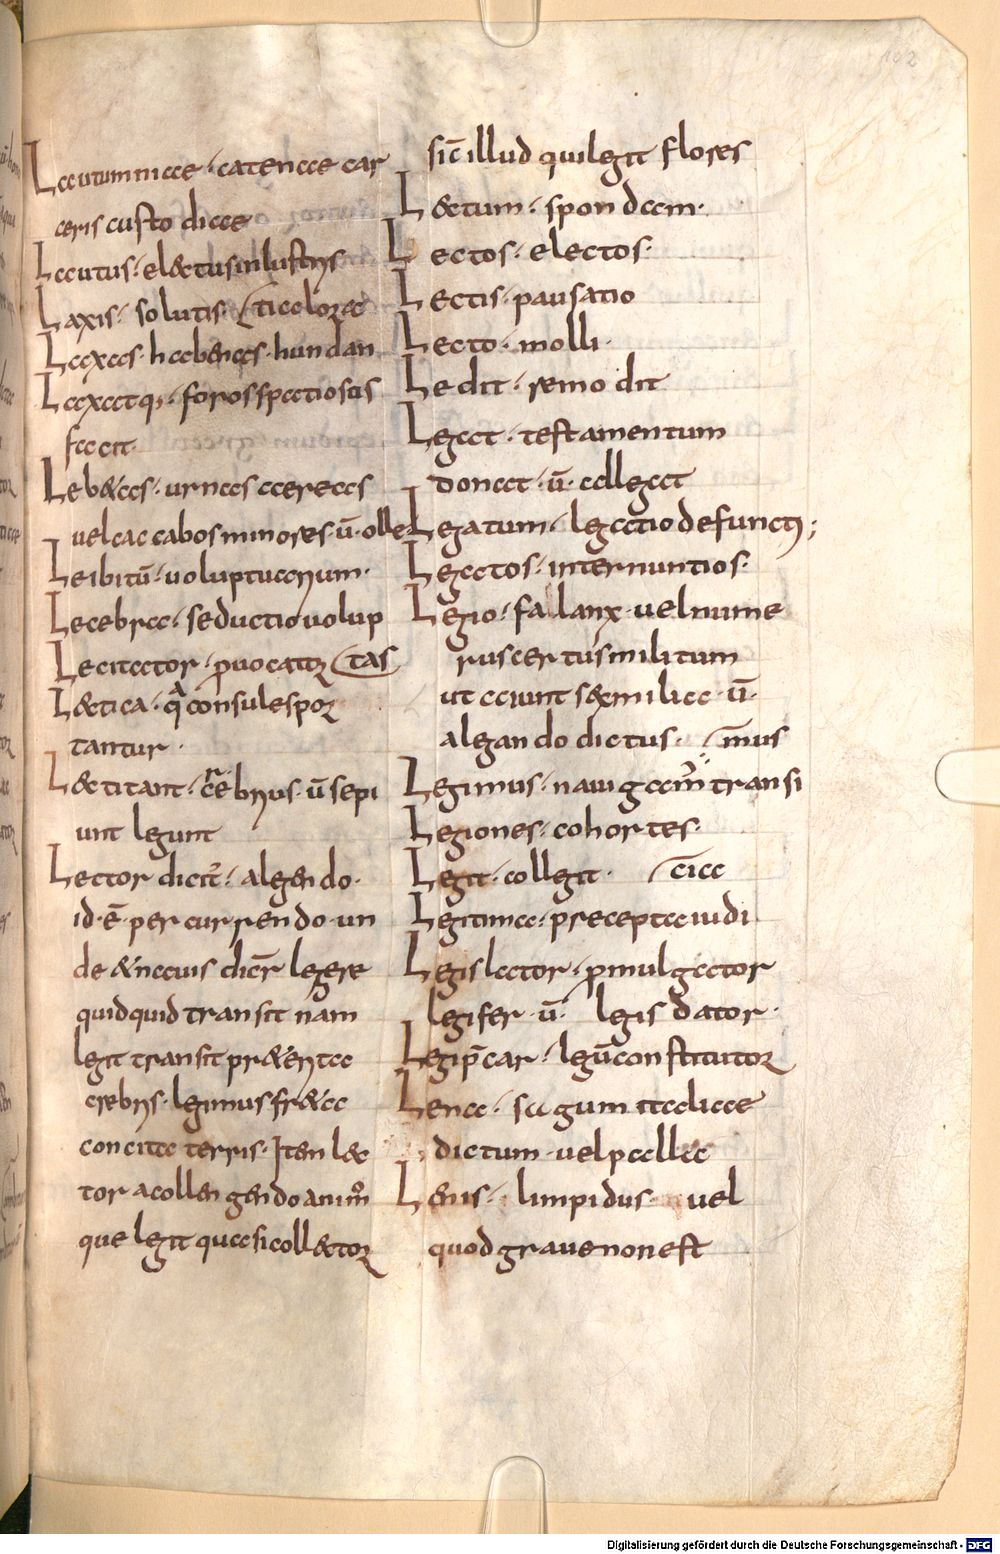 102
Lautumniae · catenae car
ceris custodiae
Lautus · electus inlustris
Laxis · solutis · (ticolorae
Laxas · habenas · hundan
Laxatq; · foros spatiosas
facit ·
Leb&as · urnas aereas
uel caccabos minores · ū · olle
Leibitū · uoluptuarium ·
Lecebra · seductio uolup
Lecitator · ꝓuocator (tas
L&tica · qͣ consules por
tantur ·
L&titant · crebrius · ū sepi
unt legunt
Lector dicit᷑ · alegendo ·
id · ē · per currendo · un
de & nauis dicit᷑ legere
quidquid transit nam
legit transit pr&erita
crebris · legimus fr&a
concita terris · Item lec
tor a collengendo animͦ
que legit quasi coll&tor
sic̄ illud qui legit flores
L&tum · spondam ·
Lectos · electos ·
Lectis · pausatio
Lecto · molli ·
Ledit · remodit
Legat · testamentum
donat · ū · collegat
Legatum · legatio defuncti;
Legatos · internuntios ·
Legio · fallanx · uel nume
rus certus militum
ut aiunt sex milia · ū ·
alegando dictus · (mus
Legimus · nauigam̄ transi
Legiones · cohortes ·
Legit · collegit · (cica
Legitima · precepta iudi
Legislator · ꝓmulgator
legifer · ū · legis dator ·
Legip̄car · legū constitutor
Lena · sagum itadicae
dictum · uel palla
Lenis · limpidus uel
quod graue non est
Digitalisierung gefördert durch die Deutsche Forschungsgemeinschaft - DFG